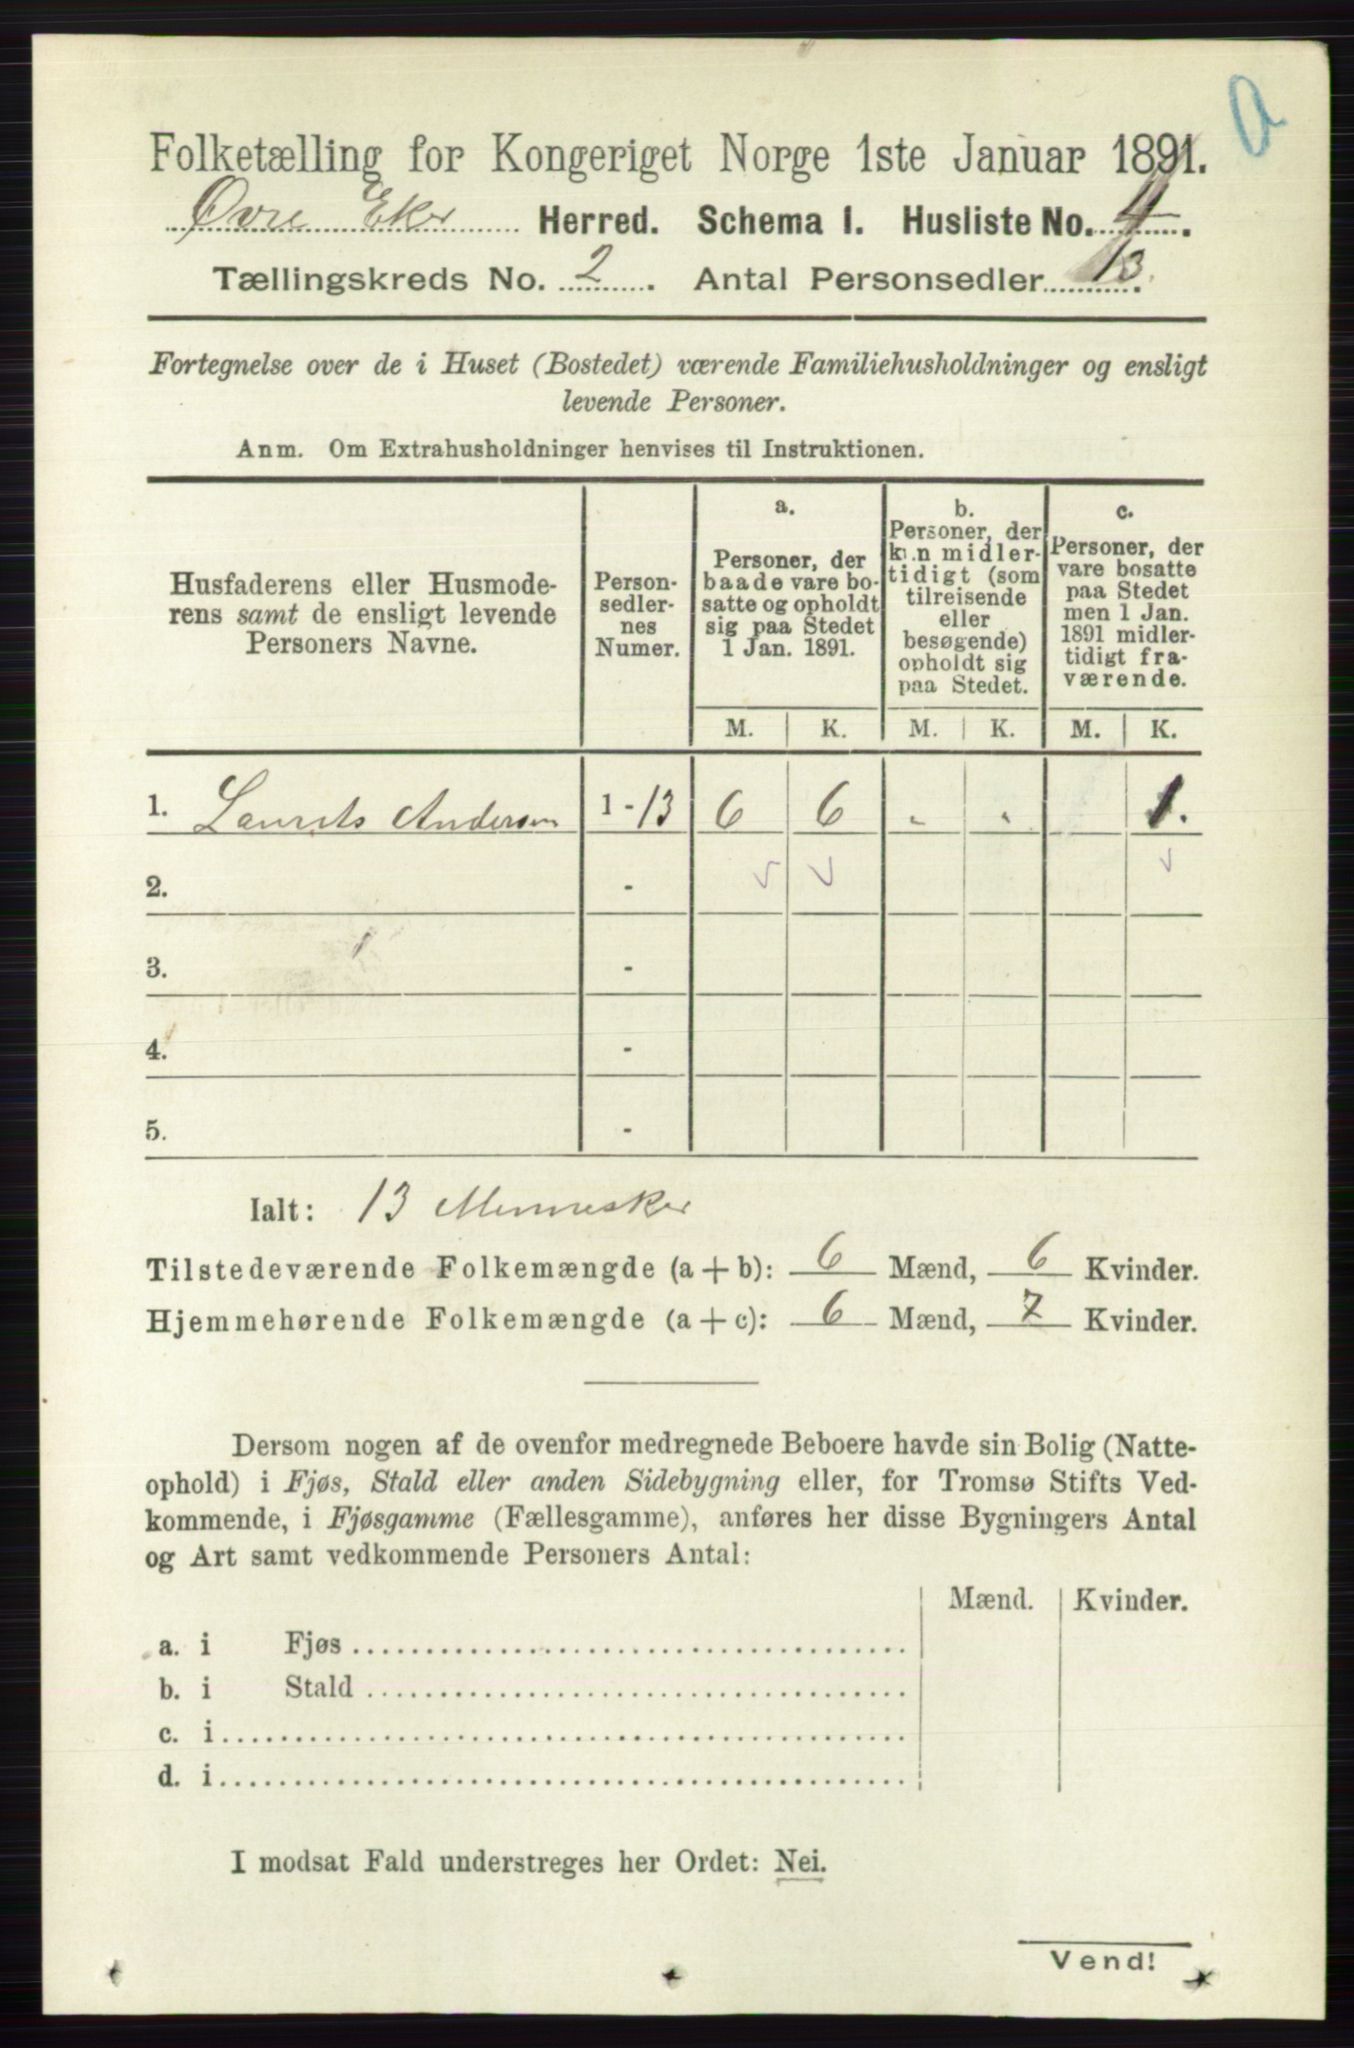 Folketælling for Kongeriget Norge 1ste Januar 1891.
Øvre Eker Herred. Schema I. Husliste No. 4.
Tællingskreds No. 2. Antal Personsedler 13.
Fortegnelse over de i Huset (Bostedet) værende Familiehusholdninger og ensligt
levende Personer.
Anm. Om Extrahusholdninger henvises til Instruktionen.
Husfaderens eller Husmode-
rens samt de ensligt levende
Personers Navne.
Person-
sedler-
nes
Numer.
a.
Personer, der
baade vare bo-
satte og opholdt
sig paa Stedet
1 Jan. 1891.
b.
Personer, der
kun midler-
tidigt (som
tilreisende
eller
besøgende)
opholdt sig
paa Stedet.
c.
Personer, der
vare bosatte
paa Stedet
men 1 Jan.
1891 midler-
tidigt fra-
værende.
M. K. M. K. M. K.
1. Laurits Andersen 1-13 6 6 - - 1.
2. -
3. -
4. -
5. -
Ialt: 13 Mennesker
Tilstedeværende Folkemængde (a+b): 6 Mænd, 6 Kvinder.
Hjemmehørende Folkemængde (a+c): 6 Mænd, 7 Kvinder.
Dersom nogen af de ovenfor medregnede Beboere havde sin Bolig (Natte-
ophold) i Fjøs, Stald eller anden Sidebygning eller, for Tromsø Stifts Ved-
kommende, i Fjøsgamme (Fællesgamme), anføres her disse Bygningers Antal
og Art samt vedkommende Personers Antal:
Mænd. Kvinder.
a. i Fjøs
b. i Stald
c. i
d. i
I modsat Fald understreges her Ordet: Nei.
Vend!